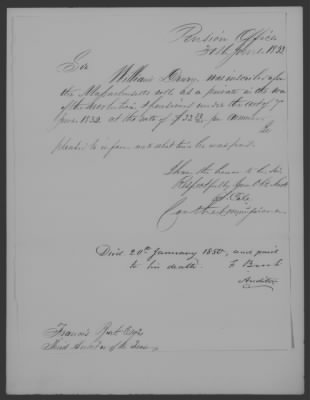 Pension Office
30th June 1853
Sir
William Drury was inscribed upon
the Massachusetts roll as a private in the war
of the revolution, & pensioned under the act of 7
June 1832. at the rate of $33 per annum.
please to inform me what time he was paid.
I have the honor to be Sir
Respectfully your Ob Servt
Died 20th January 1850, and paid
to his death.
Auditor
Francis Esqr
Third Auditor of the Treasy